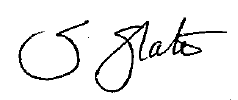 S Slater